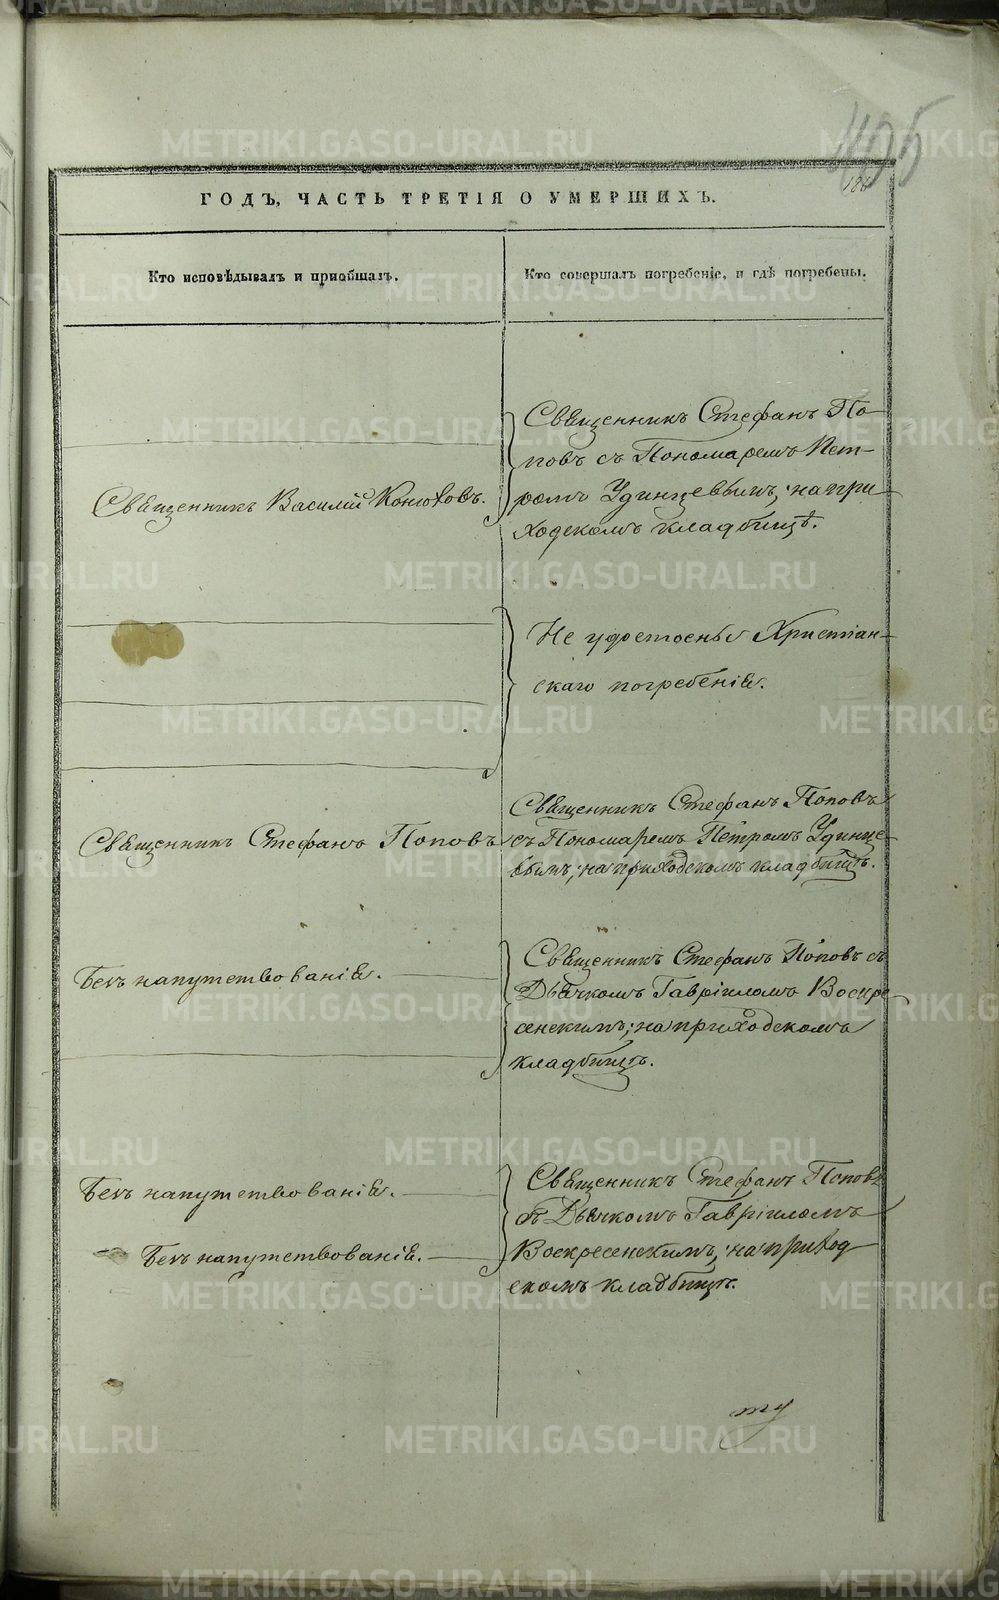 495
186
ГОДЪ, ЧАСТЬ ТРЕТІЯ О УМЕРШИХЪ.
Кто исповѣдывалъ и пріобщалъ.
Кто совершалъ погребеніе, и гдѣ погребены.
Священникъ Василій Конюховъ.
Священникъ Стефанъ По-
повъ съ Пономаремъ Пет-
ромъ Удинцевымъ; на при-
ходскомъ кладбищѣ.
Не удостоены Христіан-
скаго погребенія.
Священникъ Стефанъ Поповъ
Священникъ Стефанъ Поповъ
съ Пономаремъ Петромъ Удинце-
вымъ; на приходскомъ кладбищѣ.
Безъ напутствованія.
Священникъ Стефанъ Поповъ съ
Дьячкомъ Гавріиломъ Воскре-
сенскимъ; на приходскомъ
кладбищѣ.
Безъ напутствованія.
Безъ напутствованія.
Священникъ Стефанъ Поповъ
съ Дьячкомъ Гавріиломъ
Воскресенскимъ; на приход
скомъ кладбищѣ.
METRIKI.GASO-URAL.RU